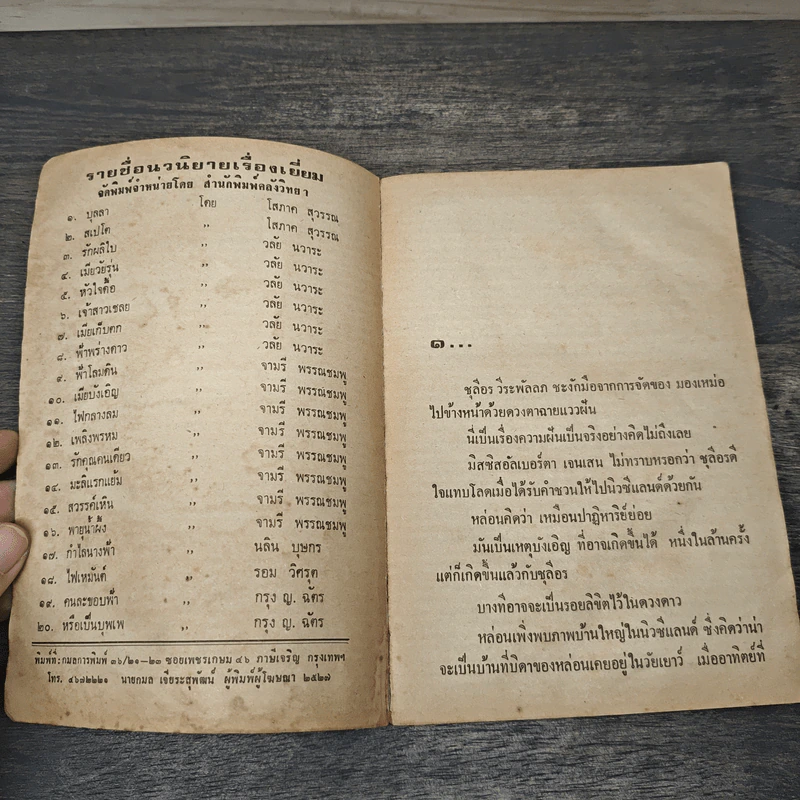 รายชื่อนวนิยายเรื่องเยี่ยม
จัดพิมพ์จำหน่ายโดย สำนักพิมพ์คลังวิทยา
๑. บุลลา โดย โสภาค สุวรรณ
๒. สเปโต ,, โสภาค สุวรรณ
๓. รักผลิใบ ,, วลัย นวาระ
๔. เมียวัยรุ่น ,, วลัย นวาระ
๕. หัวใจดื้อ ,, วลัย นวาระ
๖. เจ้าสาวเชลย ,, วลัย นวาระ
๗. เมียเก็บตก ,, วลัย นวาระ
๘. ฟ้าพร่างดาว ,, วลัย นวาระ
๙. ฟ้าโลมดิน ,, จามรี พรรณชมพู
๑๐. เมียบังเอิญ ,, จามรี พรรณชมพู
๑๑. ไฟกลางลม ,, จามรี พรรณชมพู
๑๒. เพลิงพรหม ,, จามรี พรรณชมพู
๑๓. รักคุณคนเดียว ,, จามรี พรรณชมพู
๑๔. มะลิแรกแย้ม ,, จามรี พรรณชมพู
๑๕. สวรรค์เหิน ,, จามรี พรรณชมพู
๑๖. พายุน้ำผึ้ง ,, จามรี พรรณชมพู
๑๗. กำไลนางฟ้า ,, นลิน บุษกร
๑๘. ไฟเหมันต์ ,, รอม วิศรุต
๑๙. คนละขอบฟ้า ,, กรุง ญ. ฉัตร
๒๐. หรือเป็นบุพเพ ,, กรุง ญ. ฉัตร
พิมพ์ที่:กมลการพิมพ์ ๓๖/๒๑-๒๓ ซอยเพชรเกษม ๔๖ ภาษีเจริญ กรุงเทพฯ
โทร. ๔๖๗๒๒๒๑ นายกมล เจียระสุพัฒน์ ผู้พิมพ์ผู้โฆษณา ๒๕๒๗
๑...
ชุลีอร วีระพัลลภ ชะงักมือจากการจัดของ มองเหม่อ
ไปข้างหน้าด้วยดวงตาฉายแววฝัน
นี่เป็นเรื่องความฝันเป็นจริงอย่างคิดไม่ถึงเลย
มิสซิสอัลเบอร์ตา เจนเสน ไม่ทราบหรอกว่า ชุลีอรดี
ใจแทบโลดเมื่อได้รับคำชวนให้ไปนิวซีแลนด์ด้วยกัน
หล่อนคิดว่า เหมือนปาฏิหาริย์ย่อย
มันเป็นเหตุบังเอิญ ที่อาจเกิดขึ้นได้ หนึ่งในล้านครั้ง
แต่ก็เกิดขึ้นแล้วกับชุลีอร
บางทีอาจจะเป็นรอยลิขิตไว้ในดวงดาว
หล่อนเพิ่งพบภาพบ้านใหญ่ในนิวซีแลนด์ ซึ่งคิดว่าน่า
จะเป็นบ้านที่บิดาของหล่อนเคยอยู่ในวัยเยาว์ เมื่ออาทิตย์ที่